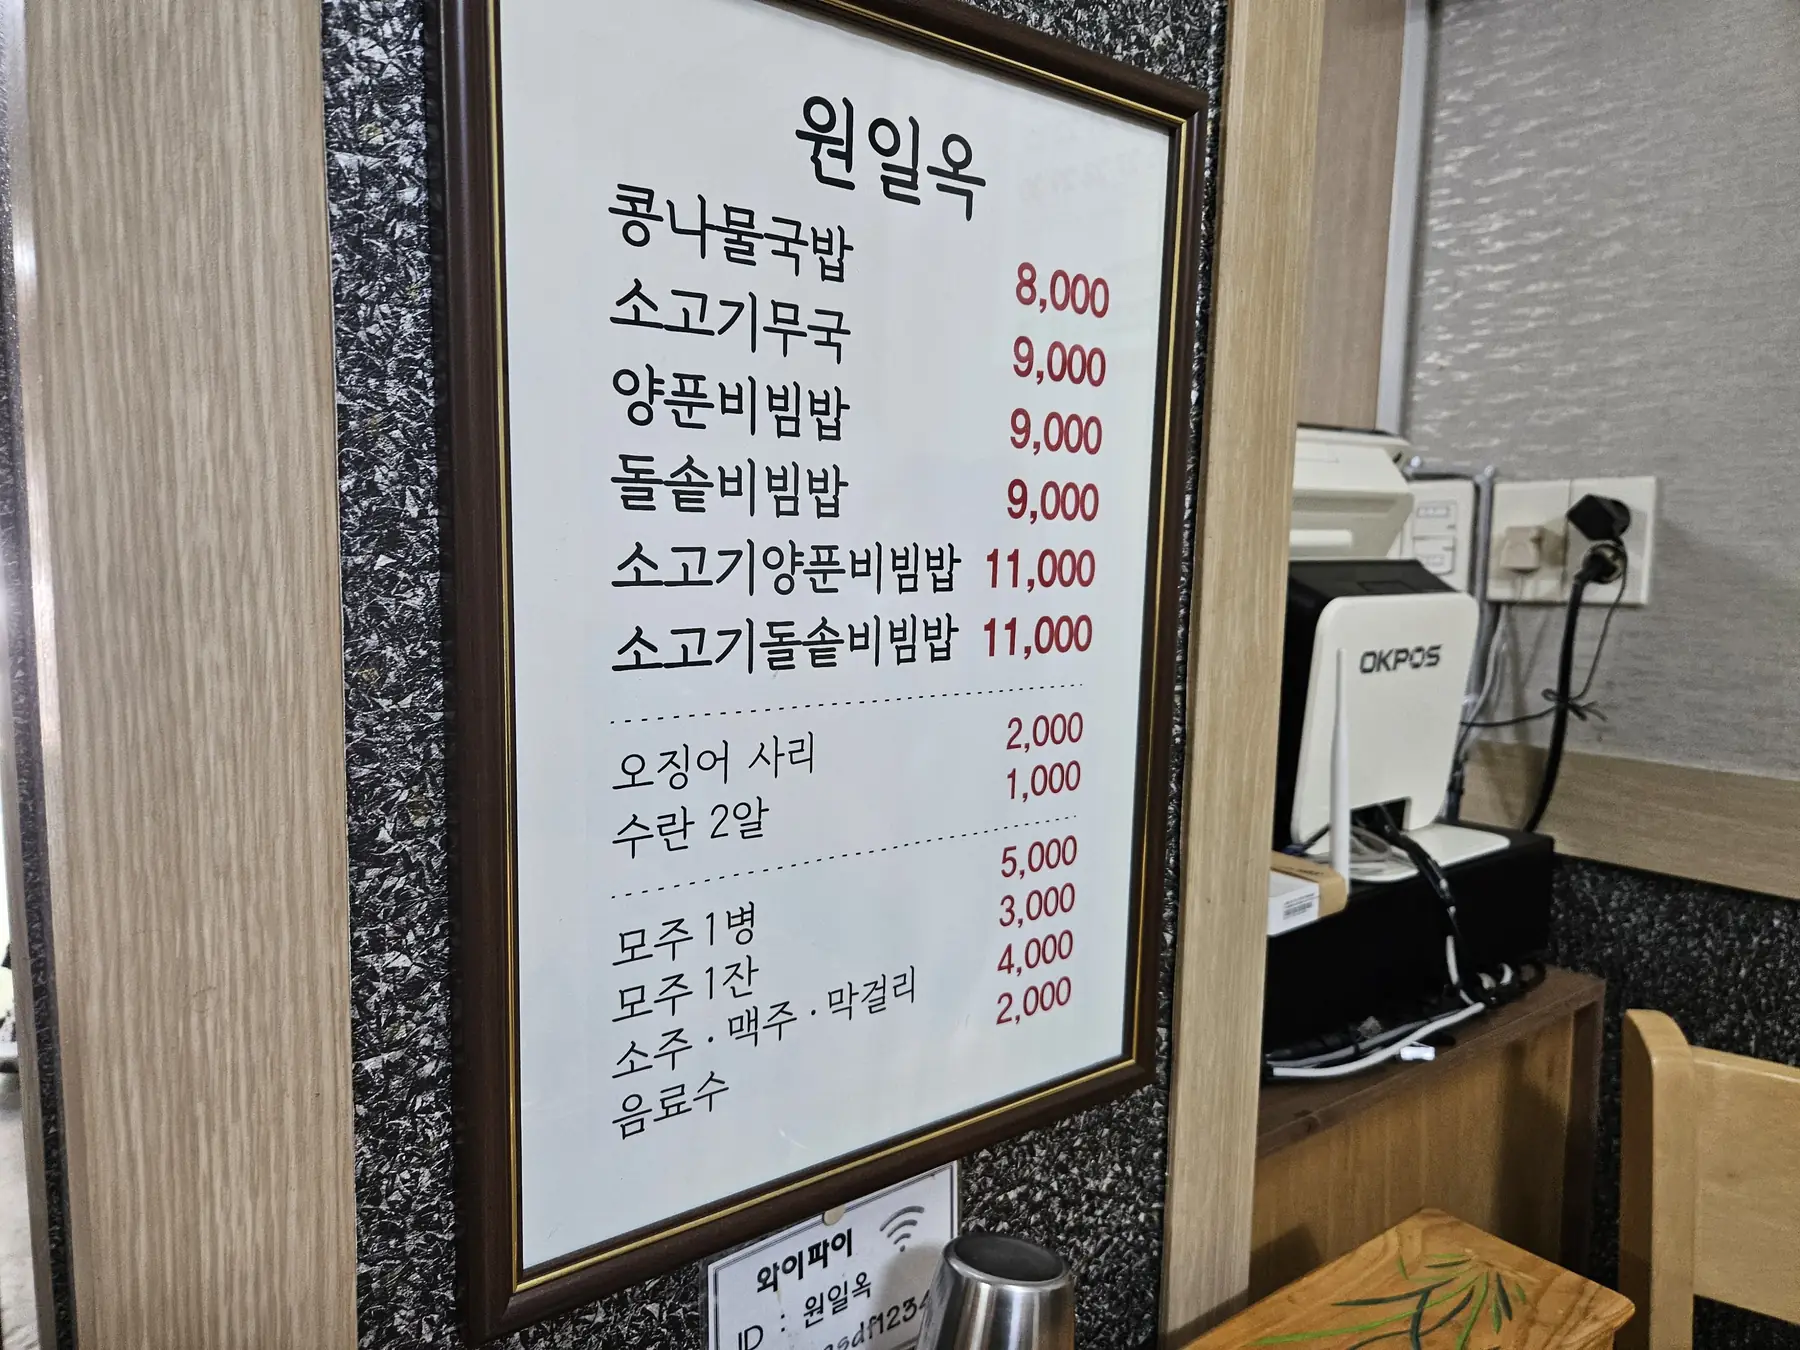 원일옥
콩나물국밥 8,000
소고기무국 9,000
양푼비빔밥 9,000
돌솥비빔밥 9,000
소고기양푼비빔밥 11,000
소고기돌솥비빔밥 11,000
오징어 사리 2,000
수란 2알 1,000
모주 1병 5,000
모주 1잔 3,000
소주 · 맥주 · 막걸리 4,000
음료수 2,000
OKPOS
와이파이
ID : 원일옥